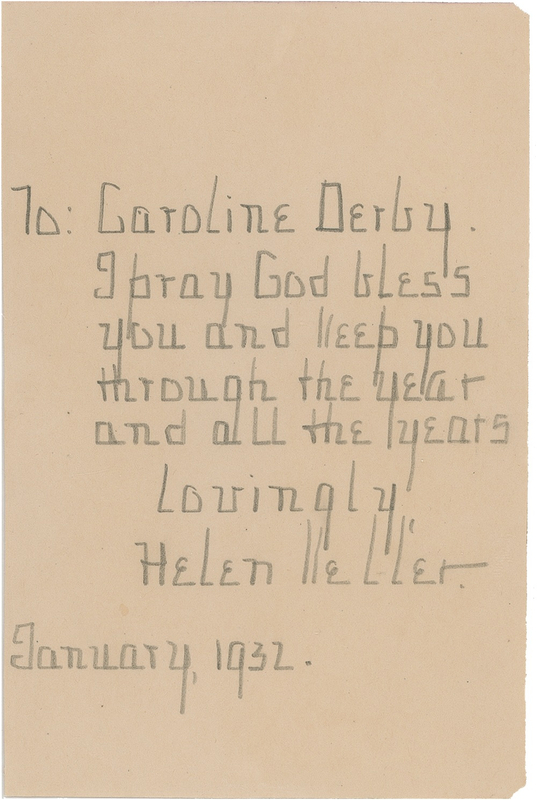 To: Caroline Derby.
I pray God bless
you and keep you
through the year
and all the years
Lovingly,
Helen Keller.
January, 1932.